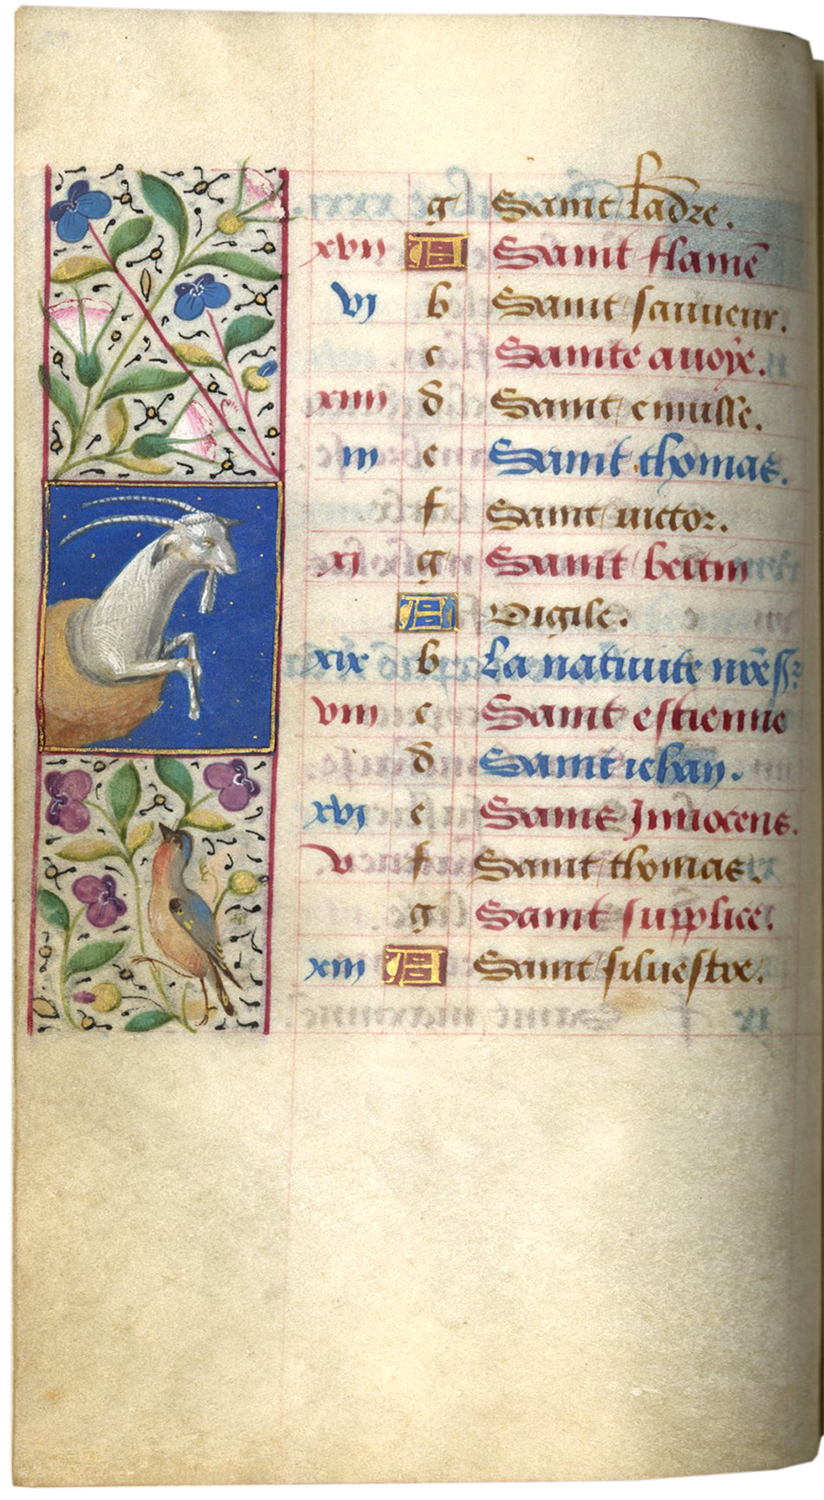 g Saint ladre.
xvii A Saint flamē
vi b Saint sauueur.
c Sainte auoye.
xiiii d Saint
iii e Saint thomas.
f Saint uictor.
xi g Saint
A Vigile.
xix b La natiuite
viii c Saint estienne
d Saint iehan.
xvi e Sains Innocens.
v f Saint thomas.
g Saint supplice.
xiii A Saint siluestre.